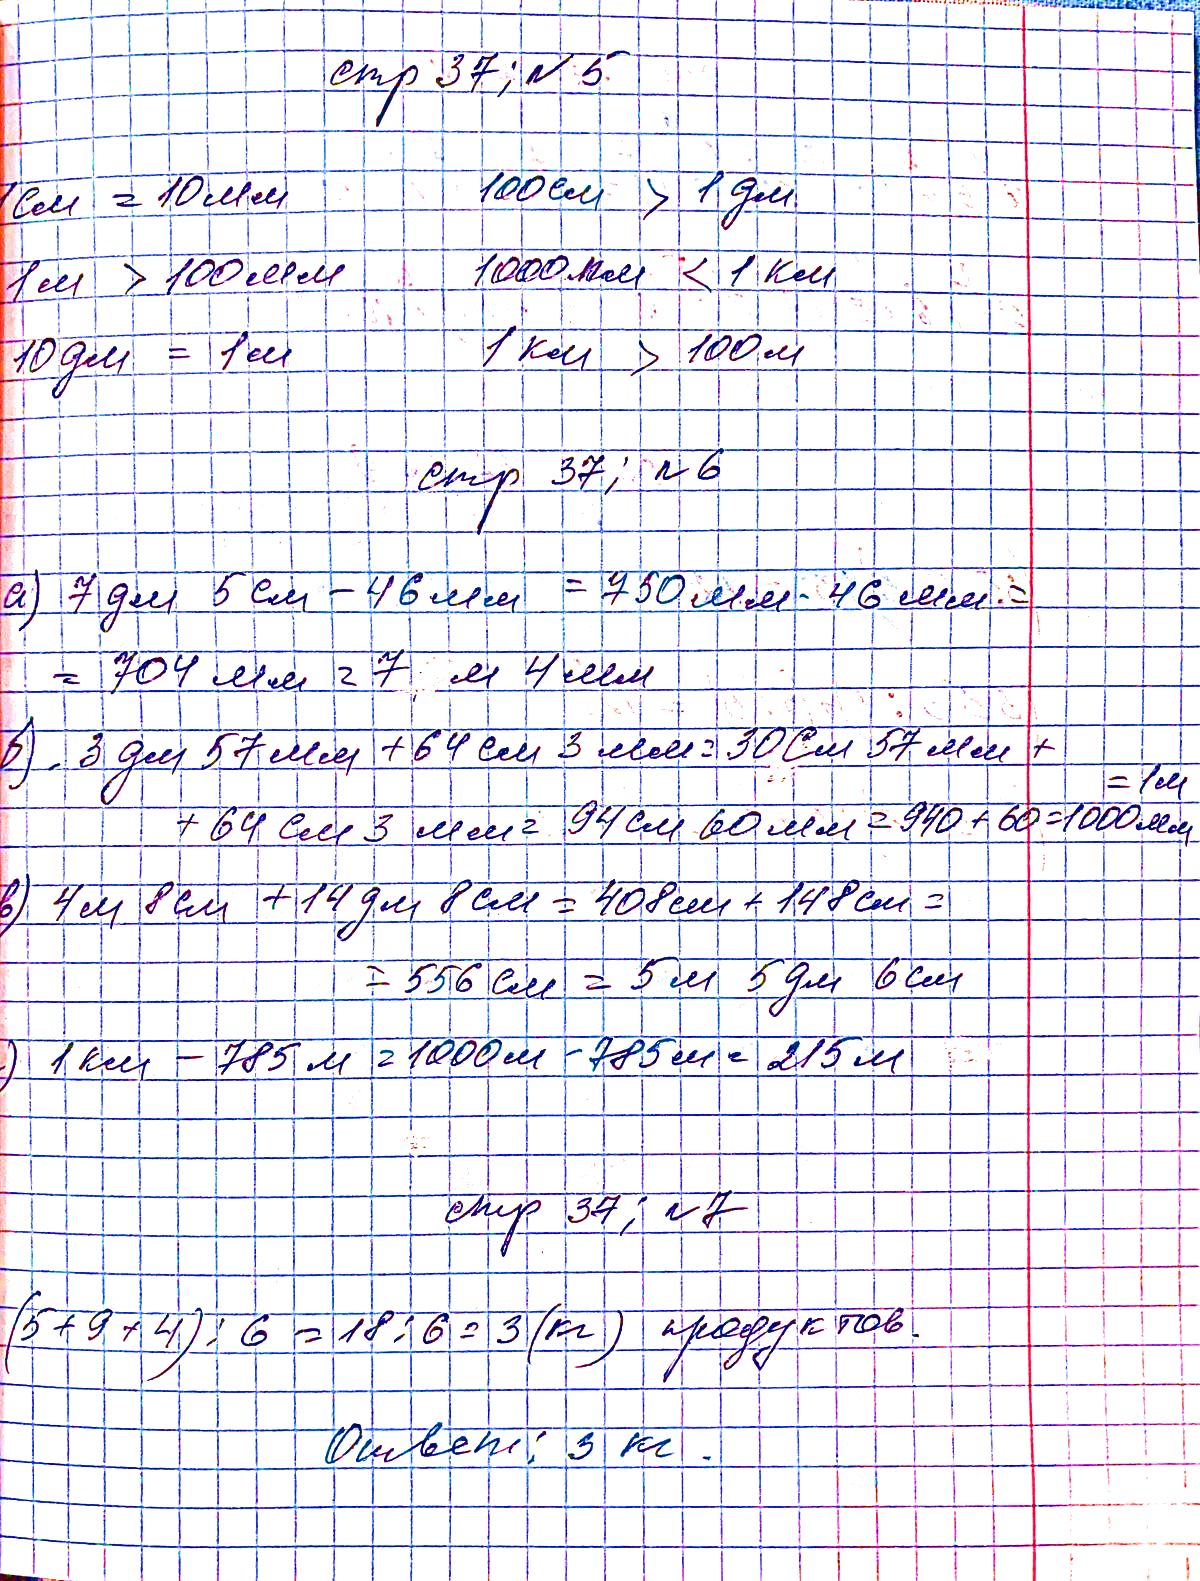 стр 37; N 5
1см = 10мм 100см > 1дм
1м > 100мм 1000мм < 1 км
10дм = 1м 1 км > 100м
стр 37; N 6
а) 7дм 5см - 46мм = 750мм - 46мм =
= 704 мм = 7 м 4мм
б) 3дм 57мм + 64см 3мм = 30см 57мм +
= 1м
+ 64см 3мм = 94см 60мм = 940 + 60 = 1000мм
в) 4м 8см + 14дм 8см = 408см + 148см =
= 556см = 5м 5дм 6см
) 1км - 785м = 1000м - 785м = 215м
стр 37; N7
(5+9+4) : 6 = 18 : 6 = 3 (кг) продуктов.
Ответ: 3 кг.